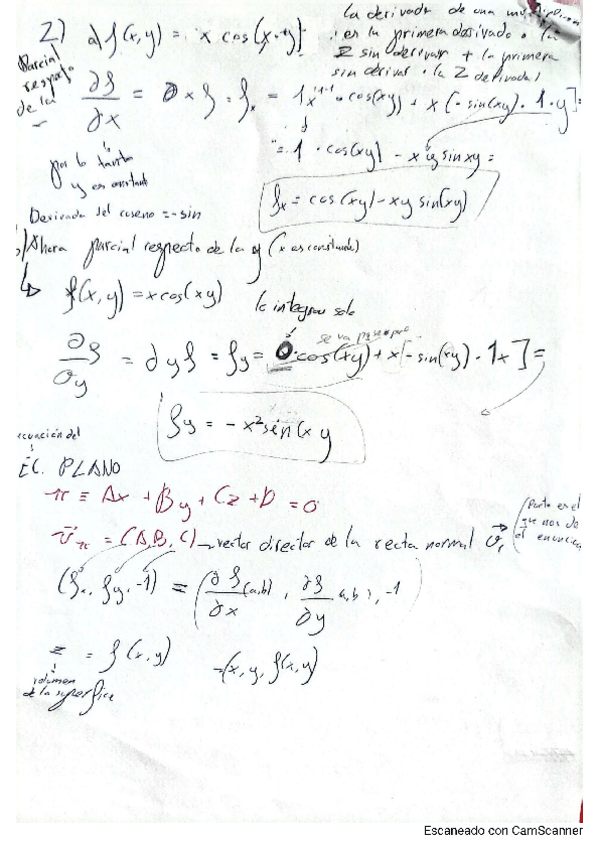 2) a) f(x,y) = x cos(x·y)
La derivada de una
es la primera derivada · la
2 sin derivar + la primera
sin derivar · la 2 derivada)
Parcial
respecto
de la
∂f/∂x = ∂xf = fx = 1x^(1-1) · cos(xy) + x [-sin(xy) · 1 · y] =
= 1 · cos(xy) - x y sin xy =
por lo tanto
y es constante
fx = cos(xy) - xy sin(xy)
Derivada del coseno = - sin
Ahora parcial respecto de la y (x es constante)
f(x,y) = x cos(xy)
∂f/∂y = ∂yf = fy = 0·cos(xy) + x[-sin(xy) · 1x] =
fy = - x² sen(xy
ecuación del
EC. PLANO
π ≡ Ax + By + Cz + D = 0
v⃗π = (A,B,C) → vector director de la recta normal v⃗r
(Punto es el
que nos da
el
(fx, fy, -1) = (∂f/∂x (a,b), ∂f/∂y (a,b), -1
z = f(x,y) (x, y, f(x,y)
volumen
de la superfice
Escaneado con CamScanner